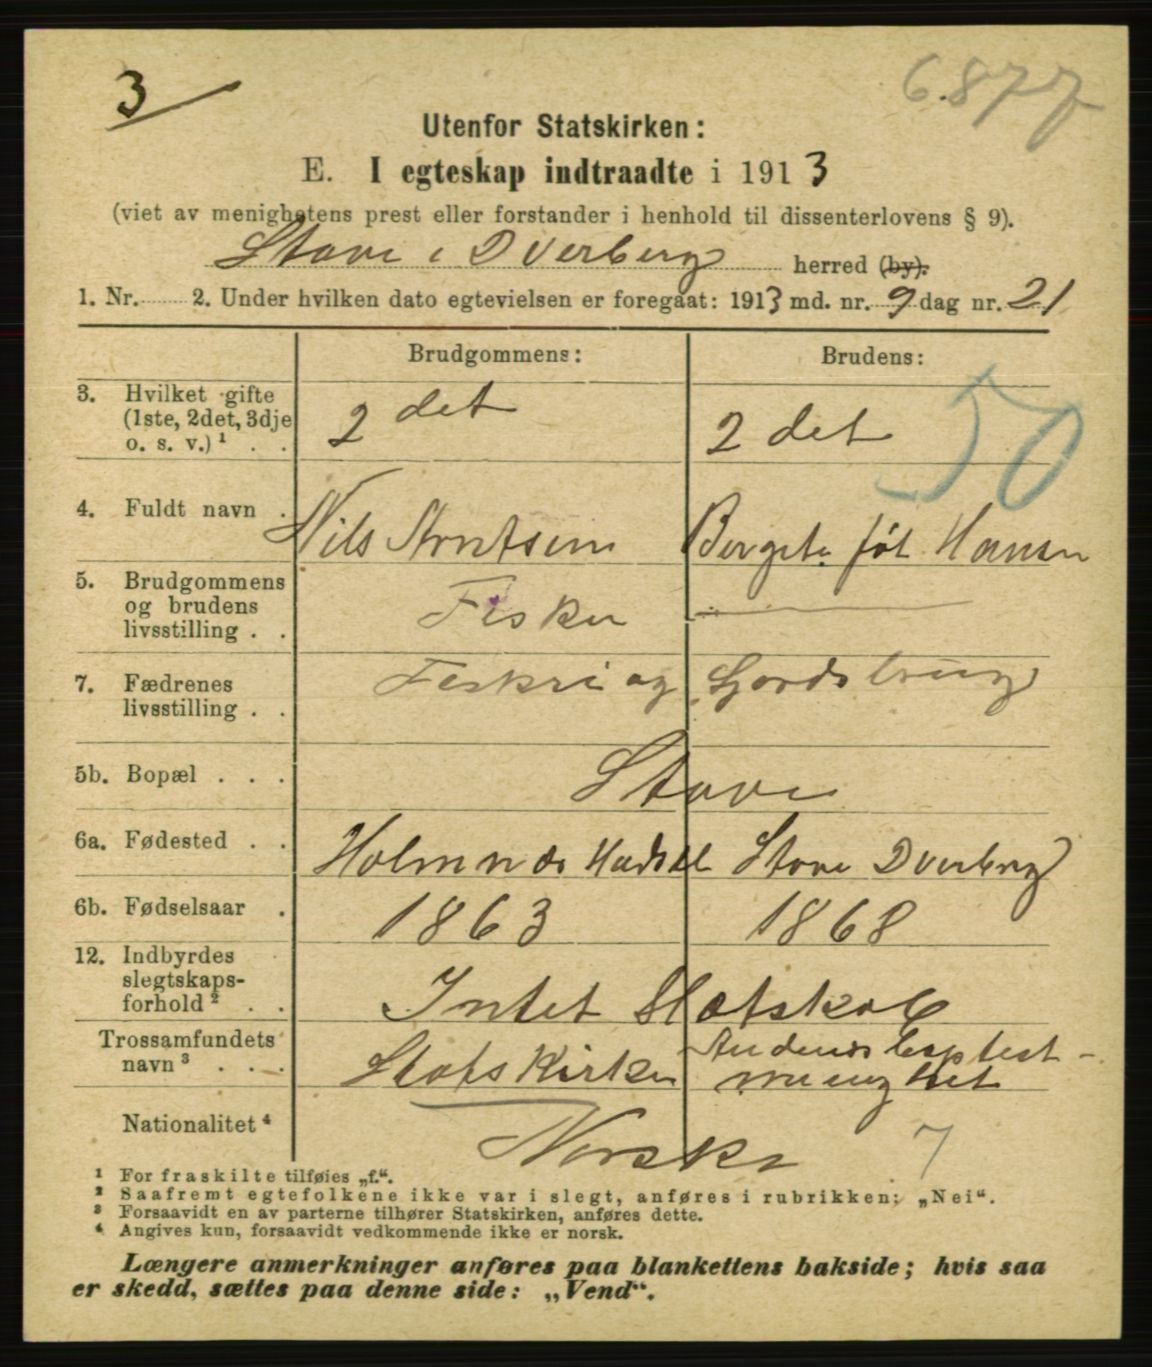 3
6.877
Utenfor Statskirken:
E. I egteskap indtraadte i 1913
(viet av menighetens prest eller forstander i henhold til dissenterlovens § 9).
Stave i Dverberg herred (by).
1. Nr. 2. Under hvilken dato egtevielsen er foregaat: 1913 md. nr. 9 dag nr. 21
Brudgommens: Brudens:
3. Hvilket gifte
(1ste, 2det, 3dje
o. s. v.)¹ . .
2 det 2 det
50
4. Fuldt navn .
Nils Arntsen Bergete føt Hansen
5. Brudgommens
og brudens
livsstilling . .
Fisker
7. Fædrenes
livsstilling . .
Feskri og
5b. Bopæl . . .
Stave
6a. Fødested . .
Holmnæs Hadsel Stave Dverberg
6b. Fødselsaar .
1863 1868
12. Indbyrdes
slegtskaps-
forhold² . .
Intet Slætskab
Trossamfundets
navn³ . . .
Statskirken Andenes baptest-
menighet
Nationalitet⁴
Norske 7
¹ For fraskilte tilføies „f.“.
² Saafremt egtefolkene ikke var i slegt, anføres i rubrikken: „Nei“.
³ Forsaavidt en av parterne tilhører Statskirken, anføres dette.
⁴ Angives kun, forsaavidt vedkommende ikke er norsk.
Længere anmerkninger anføres paa blankettens bakside; hvis saa
er skedd, sættes paa denne side: „Vend“.